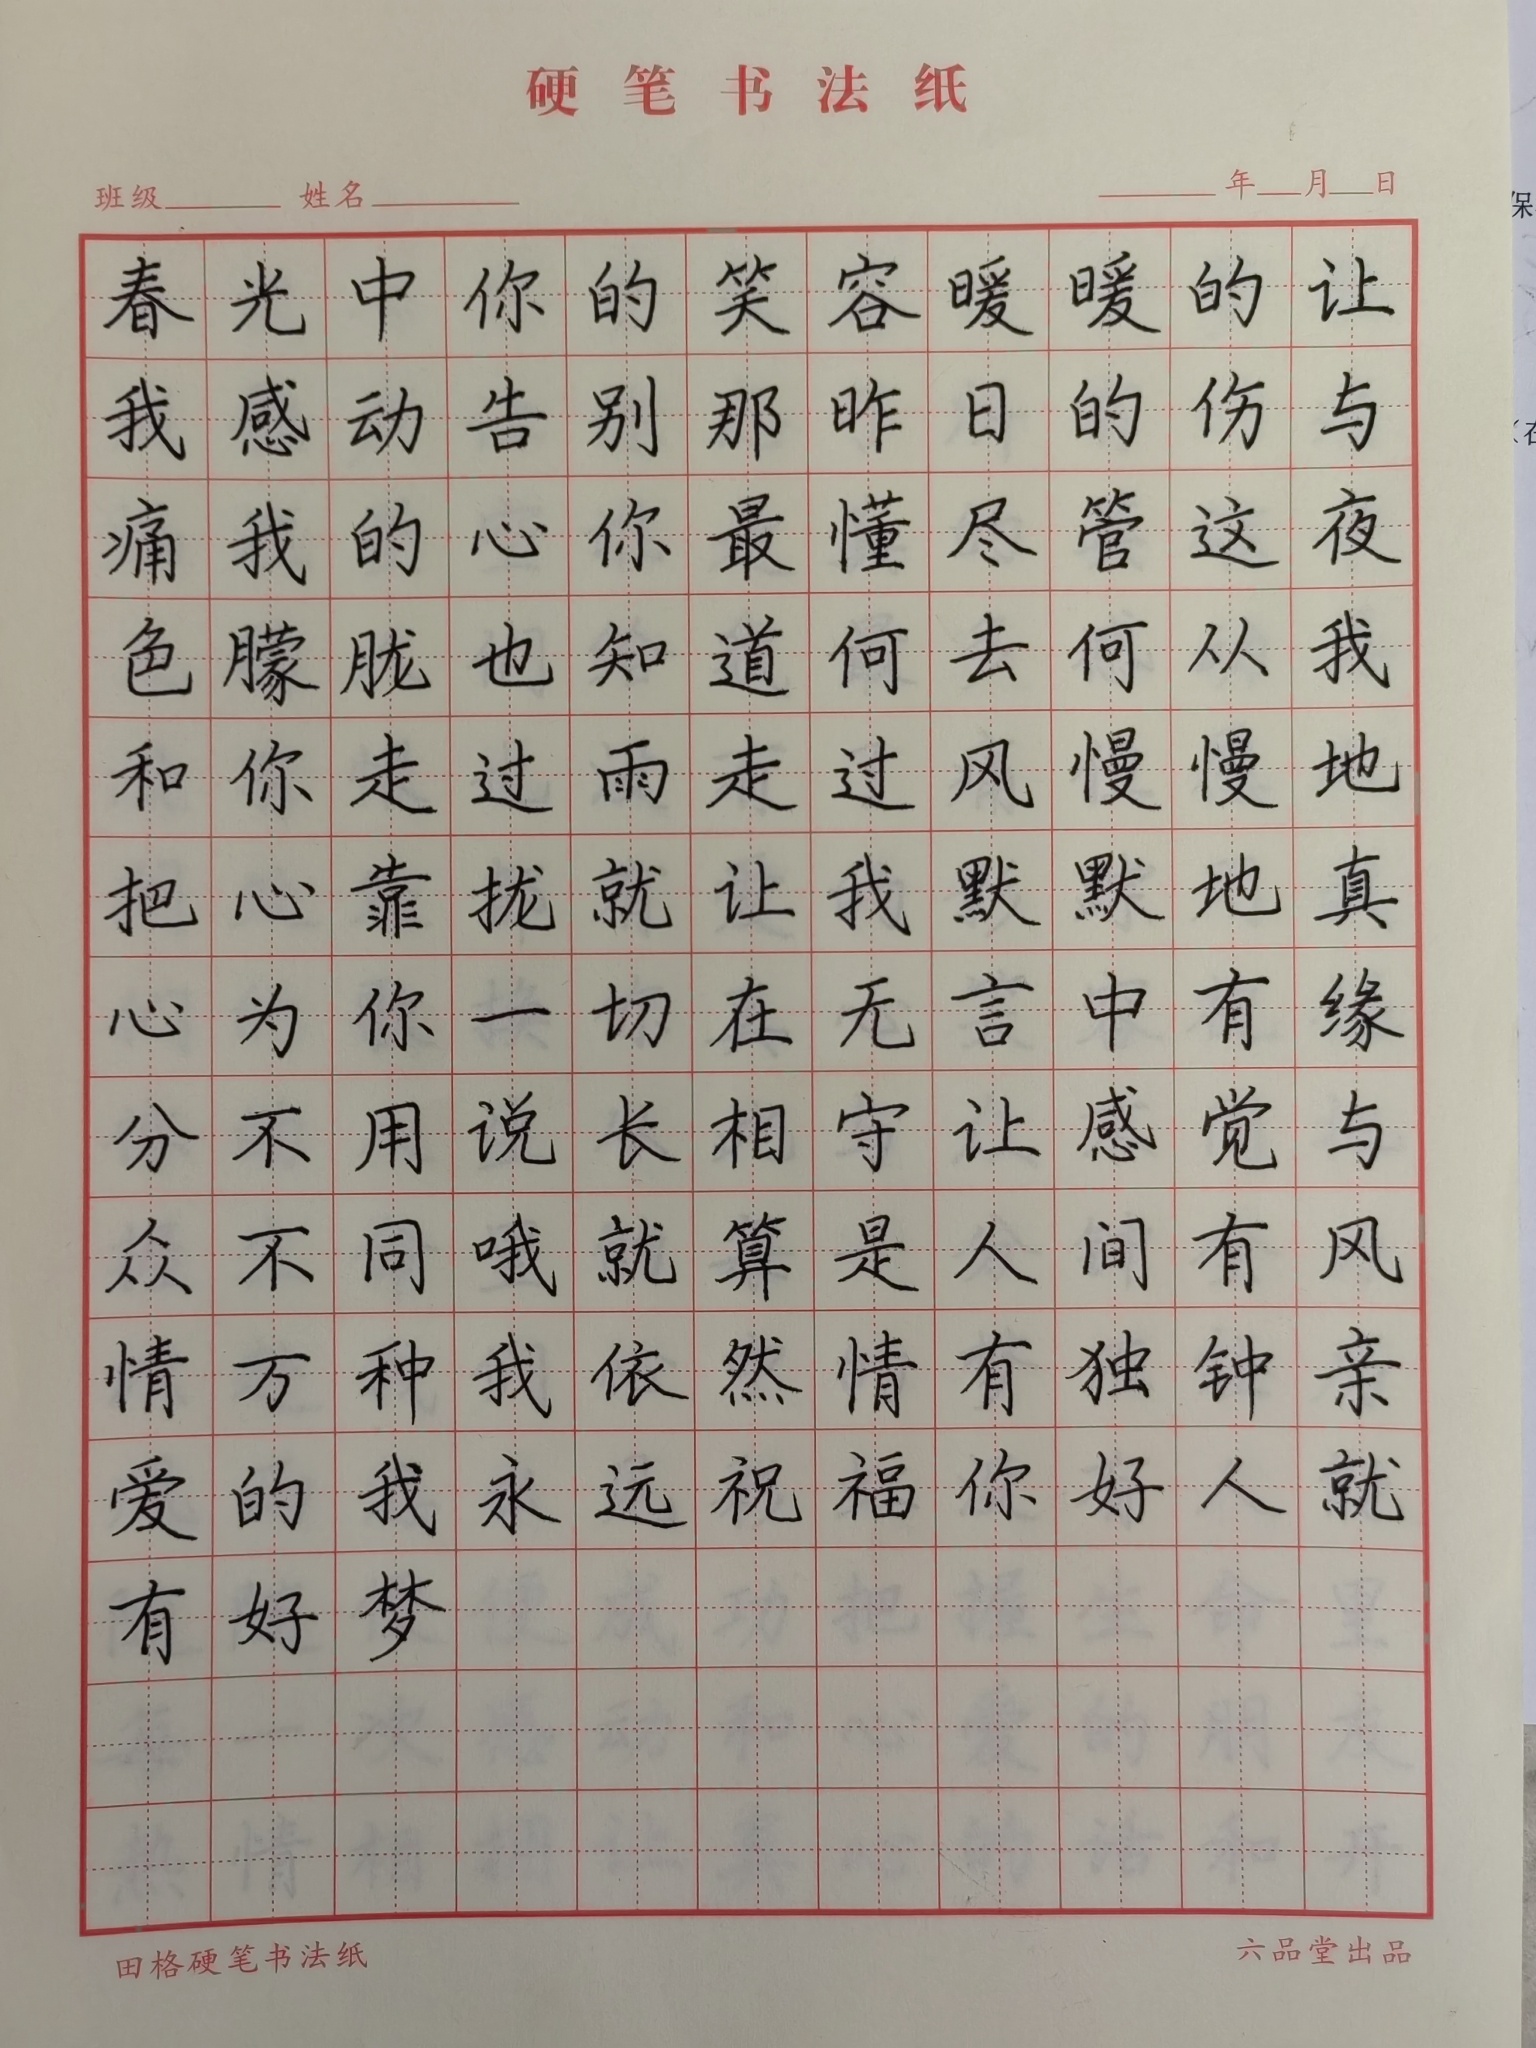 硬笔书法纸
班级 姓名 年 月 日
春光中你的笑容暖暖的让
我感动告别那昨日的伤与
痛我的心你最懂尽管这夜
色朦胧也知道何去何从我
和你走过雨走过风慢慢地
把心靠拢就让我默默地真
心为你一切在无言中有缘
分不用说长相守让感觉与
众不同哦就算是人间有风
情万种我依然情有独钟亲
爱的我永远祝福你好人就
有好梦
田格硬笔书法纸 六品堂出品
保